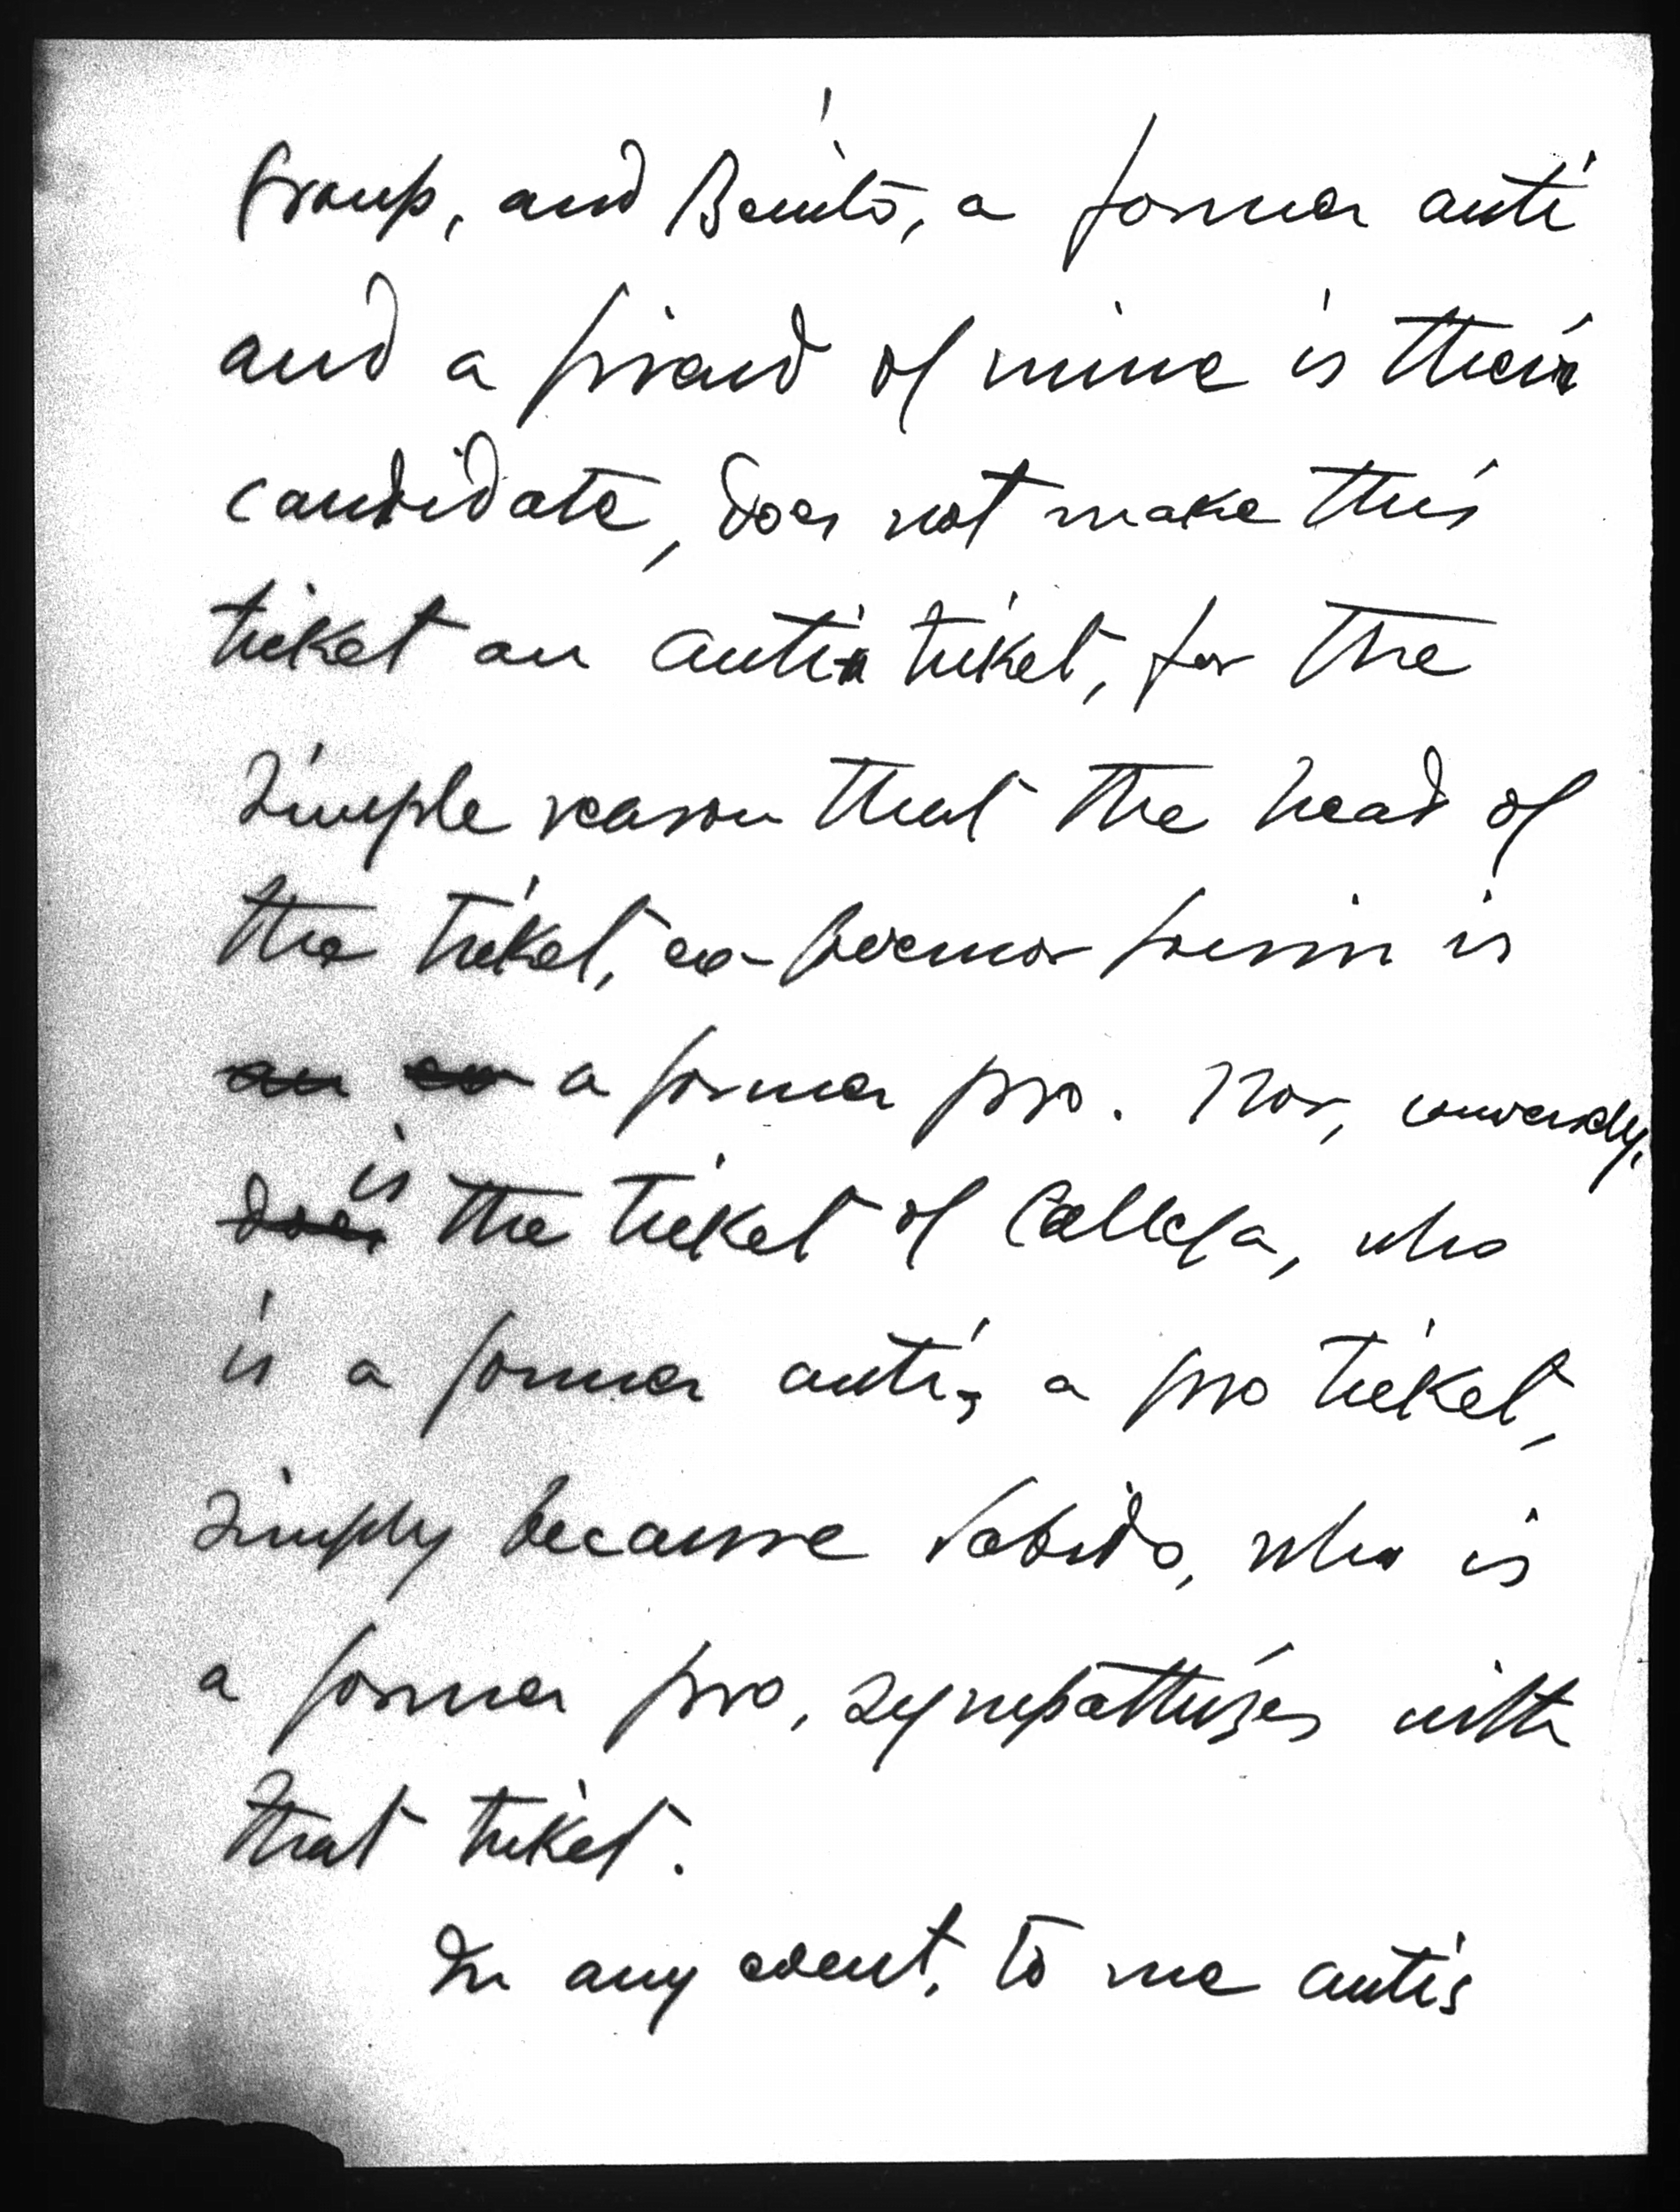 Group, and Benito, a former anti
and a friend of mine is their
candidate, does not make this
ticket an anti ticket, for the
simple reason that the head of
the ticket, ex-Governor is
a former pro. Nor, conversely,
is the ticket of Calleja, who
is a former anti, a pro ticket,
simply because Sabido, who is
a former pro, sympathizes with
that ticket.
In any event, to me antis